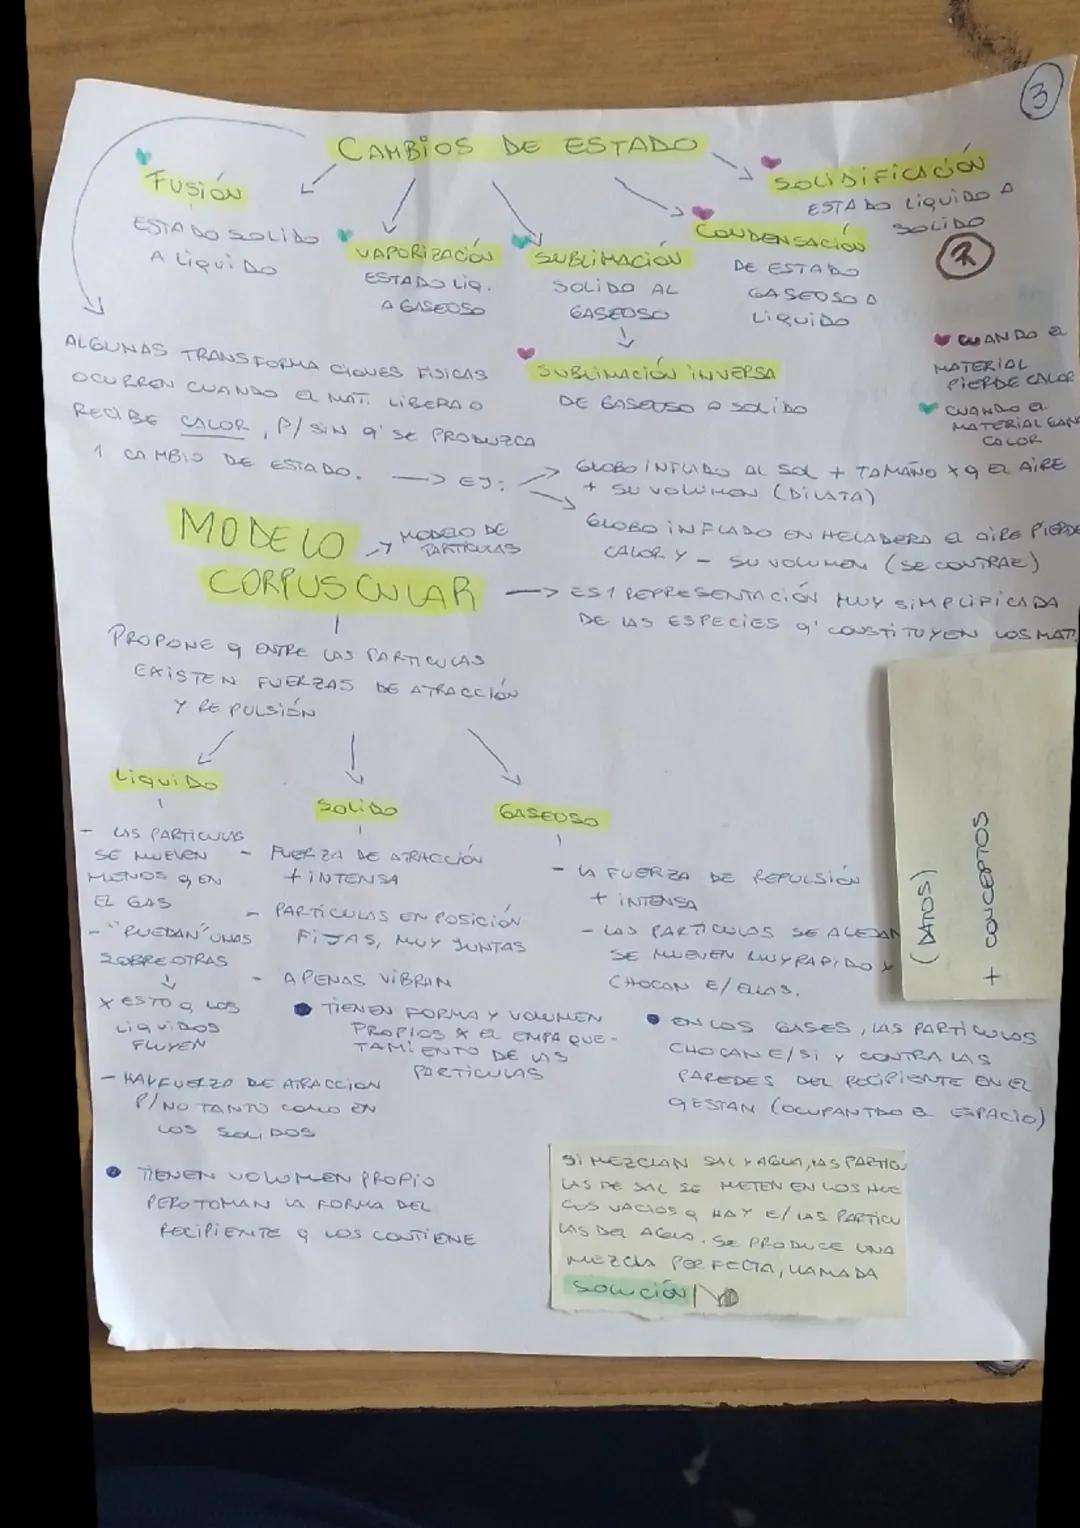 3
CAMBIOS DE ESTADO
FUSIÓN
ESTADO SOLIDO
A LÍQUIDO
VAPORIZACIÓN
ESTADO LIQ.
A GASEOSO
SUBLIMACIÓN
SOLIDO AL
GASEOSO
SUBLIMACIÓN INVERSA
DE GASEOSO A SOLIDO
CONDENSACIÓN
DE ESTADO
GASEOSO A
LÍQUIDO
SOLIDIFICACIÓN
ESTADO LIQUIDO A
SOLIDO
CUANDO EL
MATERIAL
PIERDE CALOR
CUANDO EL
MATERIAL GANA
CALOR
ALGUNAS TRANSFORMACIONES FISICAS
OCURREN CUANDO EL MAT. LIBERA O
RECIBE CALOR, P/ SIN q' SE PRODUZCA
1 CAMBIO DE ESTADO. → EJ:
GLOBO INFLADO AL SOL + TAMAÑO X q EL AIRE
+ SU VOLUMEN (DILATA)
GLOBO INFLADO EN HELADERA EL AIRE PIERDE
CALOR Y - SU VOLUMEN (SE CONTRAE)
MODELO
CORPUSCULAR
MODELO DE
PARTÍCULAS
→ ES 1 REPRESENTACIÓN MUY SIMPLIFICADA
DE LAS ESPECIES q' CONSTITUYEN LOS MAT.
PROPONE q ENTRE LAS PARTICULAS
EXISTEN FUERZAS DE ATRACCIÓN
Y REPULSIÓN
LÍQUIDO
- LAS PARTICULAS
SE MUEVEN
MENOS q EN
EL GAS
- "RUEDAN" UNAS
SOBRE OTRAS
X ESTO q LOS
LIQUIDOS
FLUYEN
- HAY FUERZA DE ATRACCION
P/ NO TANTO COMO EN
LOS SOLIDOS
TIENEN VOLUMEN PROPIO
PERO TOMAN LA FORMA DEL
RECIPIENTE q LOS CONTIENE
SOLIDO
- FUERZA DE ATRACCIÓN
+ INTENSA
- PARTÍCULAS EN POSICIÓN
FIJAS, MUY JUNTAS
- APENAS VIBRAN
TIENEN FORMA Y VOLUMEN
PROPIOS X EL EMPAQUE-
TAMIENTO DE LAS
PARTÍCULAS
GASEOSO
- LA FUERZA DE REPULSIÓN
+ INTENSA
- LAS PARTICULAS SE ALEJAN
SE MUEVEN MUY RAPIDO Y
CHOCAN E/ ELLAS.
EN LOS GASES, LAS PARTÍCULAS
CHOCAN E/ SÍ Y CONTRA LAS
PAREDES DEL RECIPIENTE EN EL
q ESTAN (OCUPANTDO EL ESPACIO)
(DATOS)
+ CONCEPTOS
SI MEZCLAN SAL Y AGUA, LAS PARTICU
LAS DE SAL SE METEN EN LOS HUE
COS VACIOS q HAY E/ LAS PARTICU
LAS DEL AGUA. SE PRODUCE UNA
MEZCLA PERFECTA, LLAMADA
SOLUCIÓN